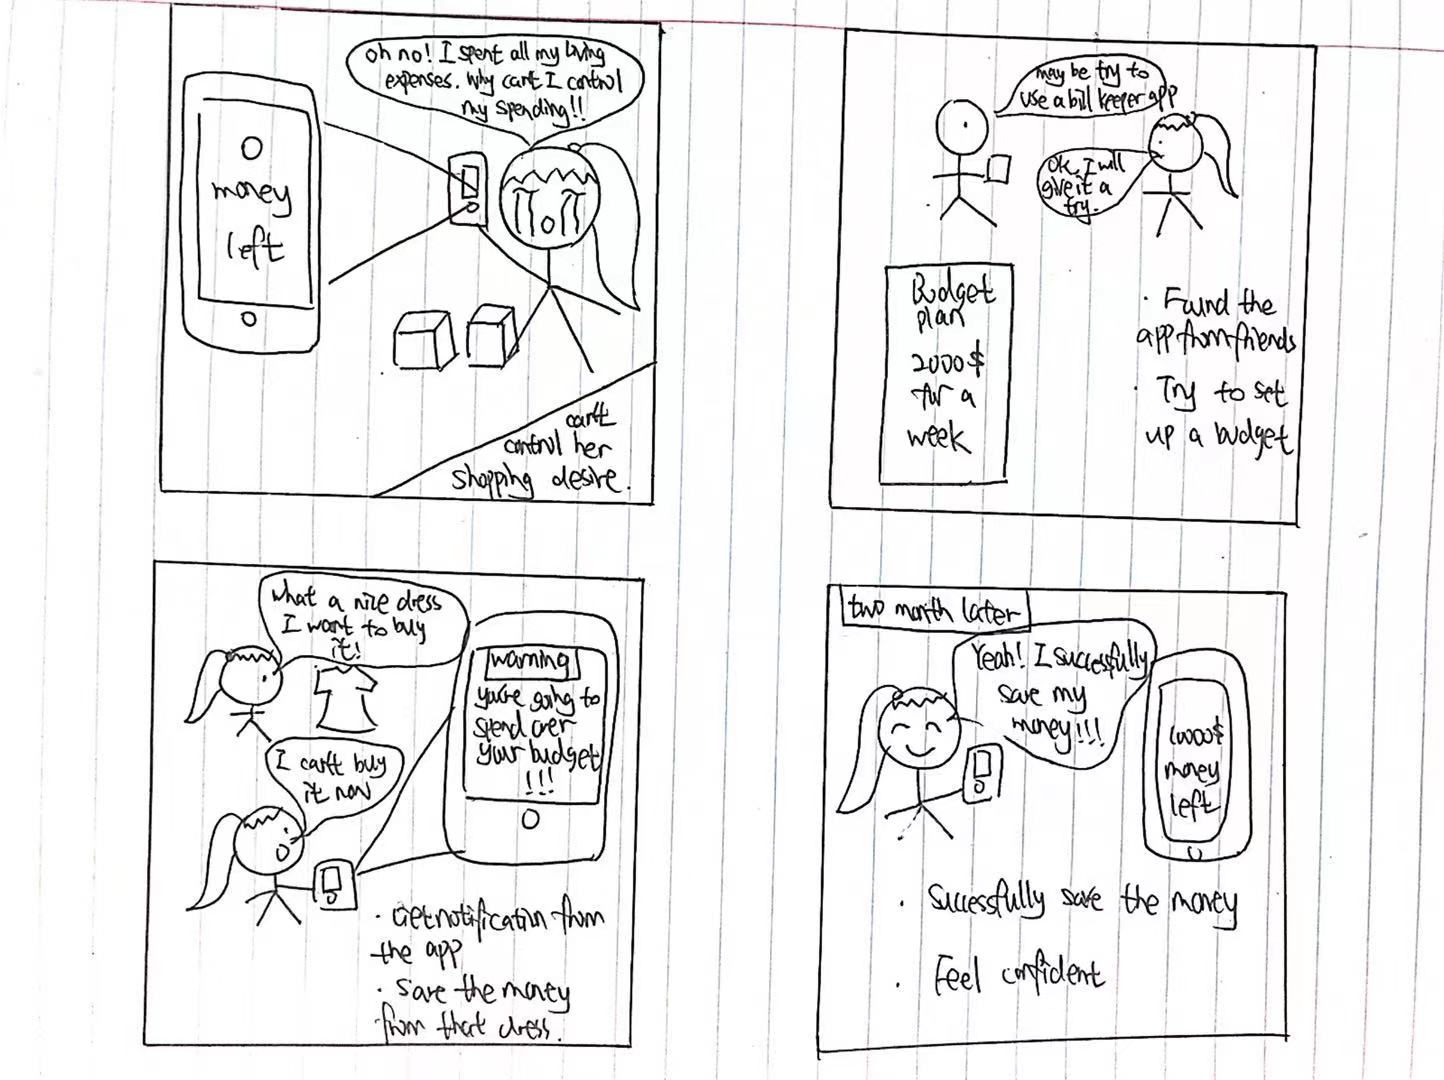 oh no! I spent all my living
expenses. Why can't I control
my spending!!
0
money
left
can't
control her
shopping desire.
may be try to
use a bill keeper app
Ok, I will
give it a
try.
Budget
plan
2000$
for a
week
· Found the
app from friends
· Try to set
up a budget
what a nice dress
I want to buy
it!
warning
you're going to
spend over
your budget
!!!
I can't buy
it now
· Get notification from
the app
· Save the money
from that dress.
two month later
Yeah! I successfully
save my
money!!!
10000$
money
left
· Successfully save the money
· Feel confident